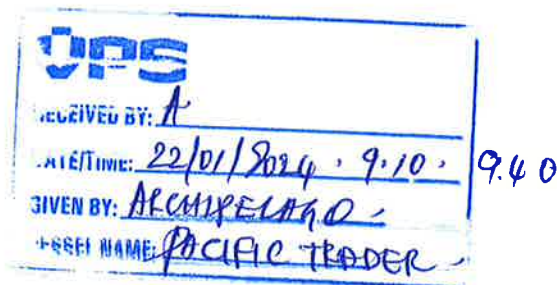 OPS
RECEIVED BY: A
DATE/TIME: 22/01/2024 · 9.10 · 9.40
GIVEN BY: ARCHIPELAGO -
VESSEL NAME: PACIFIC TRADER -